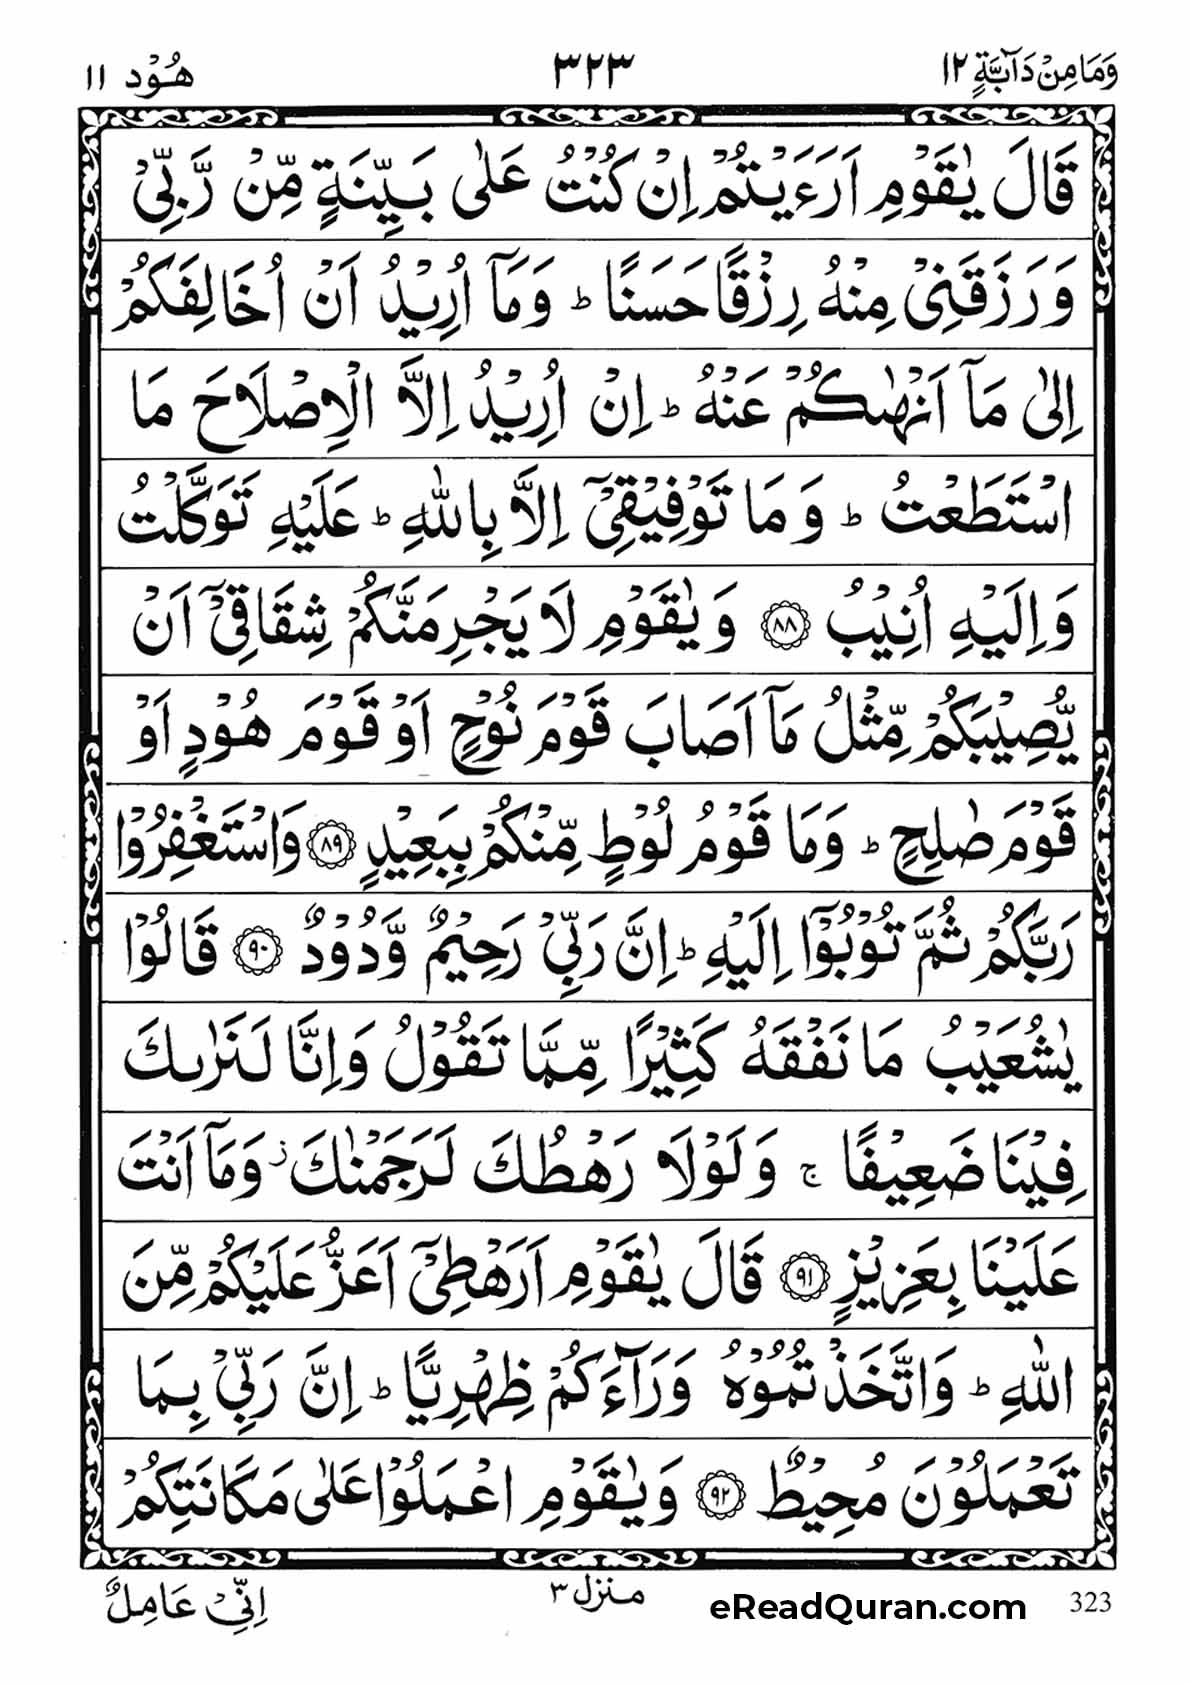 وَمَا مِنْ دَآبَّةٍ ١٢ ٣٢٣ هُوْد ١١
قَالَ يٰقَوْمِ اَرَءَيْتُمْ اِنْ كُنْتُ عَلٰى بَيِّنَةٍ مِّنْ رَّبِّيْ
وَرَزَقَنِيْ مِنْهُ رِزْقًا حَسَنًا ؕ وَمَاۤ اُرِيْدُ اَنْ اُخَالِفَكُمْ
اِلٰى مَاۤ اَنْهٰىكُمْ عَنْهُ ؕ اِنْ اُرِيْدُ اِلَّا الْاِصْلَاحَ مَا
اسْتَطَعْتُ ؕ وَمَا تَوْفِيْقِيْۤ اِلَّا بِاللّٰهِ ؕ عَلَيْهِ تَوَكَّلْتُ
وَاِلَيْهِ اُنِيْبُ ٨٨ وَيٰقَوْمِ لَا يَجْرِمَنَّكُمْ شِقَاقِيْۤ اَنْ
يُّصِيْبَكُمْ مِّثْلُ مَاۤ اَصَابَ قَوْمَ نُوْحٍ اَوْ قَوْمَ هُوْدٍ اَوْ
قَوْمَ صٰلِحٍ ؕ وَمَا قَوْمُ لُوْطٍ مِّنْكُمْ بِبَعِيْدٍ ٨٩ وَاسْتَغْفِرُوْا
رَبَّكُمْ ثُمَّ تُوْبُوْۤا اِلَيْهِ ؕ اِنَّ رَبِّيْ رَحِيْمٌ وَّدُوْدٌ ٩٠ قَالُوْا
يٰشُعَيْبُ مَا نَفْقَهُ كَثِيْرًا مِّمَّا تَقُوْلُ وَاِنَّا لَنَرٰىكَ
فِيْنَا ضَعِيْفًا ۚ وَلَوْلَا رَهْطُكَ لَرَجَمْنٰكَ ؗ وَمَاۤ اَنْتَ
عَلَيْنَا بِعَزِيْزٍ ٩١ قَالَ يٰقَوْمِ اَرَهْطِيْۤ اَعَزُّ عَلَيْكُمْ مِّنَ
اللّٰهِ ؕ وَاتَّخَذْتُمُوْهُ وَرَآءَكُمْ ظِهْرِيًّا ؕ اِنَّ رَبِّيْ بِمَا
تَعْمَلُوْنَ مُحِيْطٌ ٩٢ وَيٰقَوْمِ اعْمَلُوْا عَلٰى مَكَانَتِكُمْ
اِنِّيْ عَامِلٌ
منزل ٣
eReadQuran.com
323